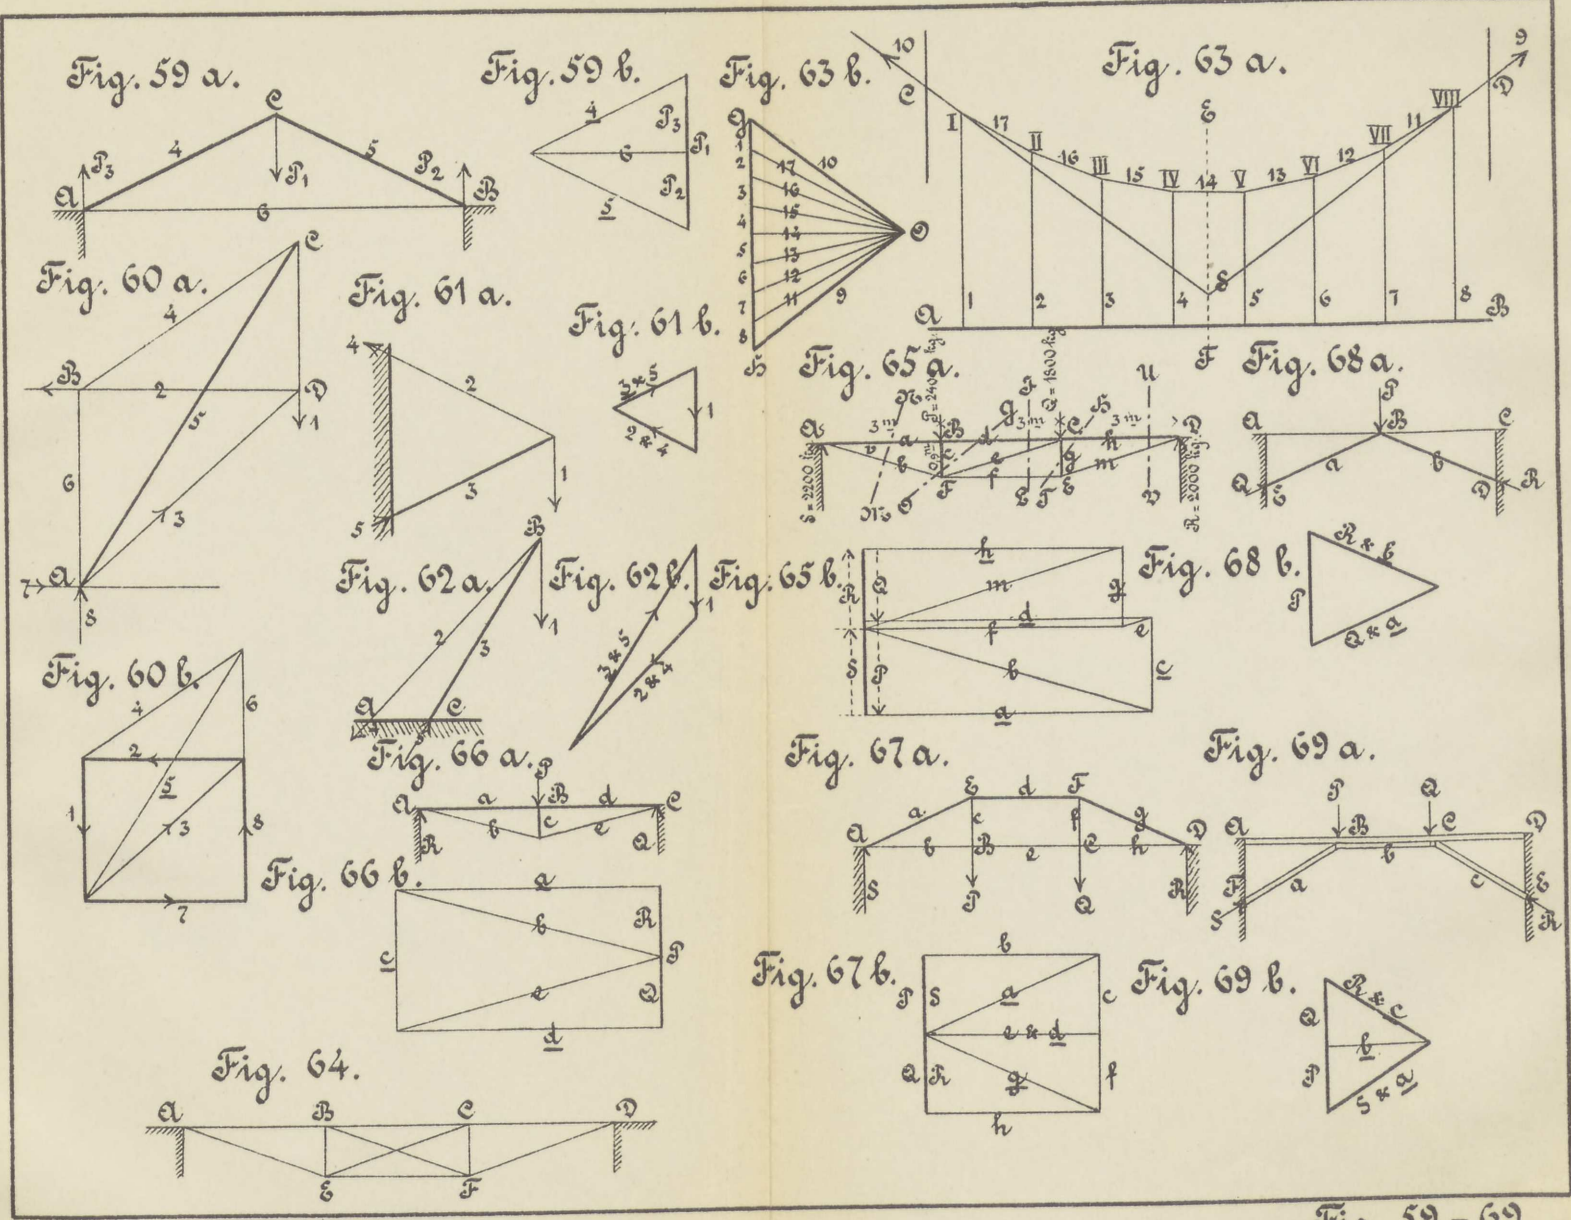 Fig. 59 a.
C
4
5
P3
P1
P2
A
B
6
Fig. 59 b.
4
P3
6
P1
P2
5
Fig. 63 b.
G
1
2
17
10
16
3
15
4
14
O
5
13
6
12
7
11
9
8
H
Fig. 63 a.
10
9
C
D
E
I
17
II
16
III
15
IV
14
V
13
VI
12
VII
11
VIII
S
A
1
2
3
4
5
6
7
8
B
F
Fig. 60 a.
C
4
B
2
D
5
1
6
3
7
A
8
Fig. 61 a.
4
2
3
1
5
Fig. 61 b.
3 & 5
1
2 & 4
Fig. 65 a.
Q = 1800 kg
U
A
3 m
a
B
d
g
3 m
C
H
3 m
h
D
b
c
e
g
m
0,9 m
F
f
E
L
V
S = 2200 kg
R = 2000 kg.
Fig. 68 a.
P
A
B
C
a
b
Q
E
D
R
Fig. 62 a.
B
2
3
1
A
C
4
5
Fig. 62 b.
1
3 & 5
2 & 4
Fig. 65 b.
h
R
Q
m
g
d
f
e
S
P
b
c
a
Fig. 68 b.
R & b
P
Q & a
Fig. 60 b.
4
6
2
5
1
3
8
7
Fig. 66 a.
P
A
a
B
d
C
b
c
e
R
Q
Fig. 66 b.
a
b
R
c
P
e
Q
d
Fig. 67 a.
E
d
F
a
c
f
g
A
b
B
e
C
h
D
S
P
Q
R
Fig. 69 a.
P
Q
A
B
C
D
b
a
c
F
E
S
R
Fig. 67 b.
b
P
S
a
c
e & d
Q
R
g
f
h
Fig. 69 b.
R & c
Q
b
P
S & a
Fig. 64.
A
B
C
D
E
F
Fig. 59 - 69